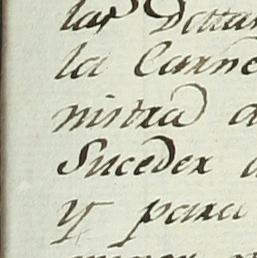 las Dotta
la Carne
nistra a
Suceder a
y para